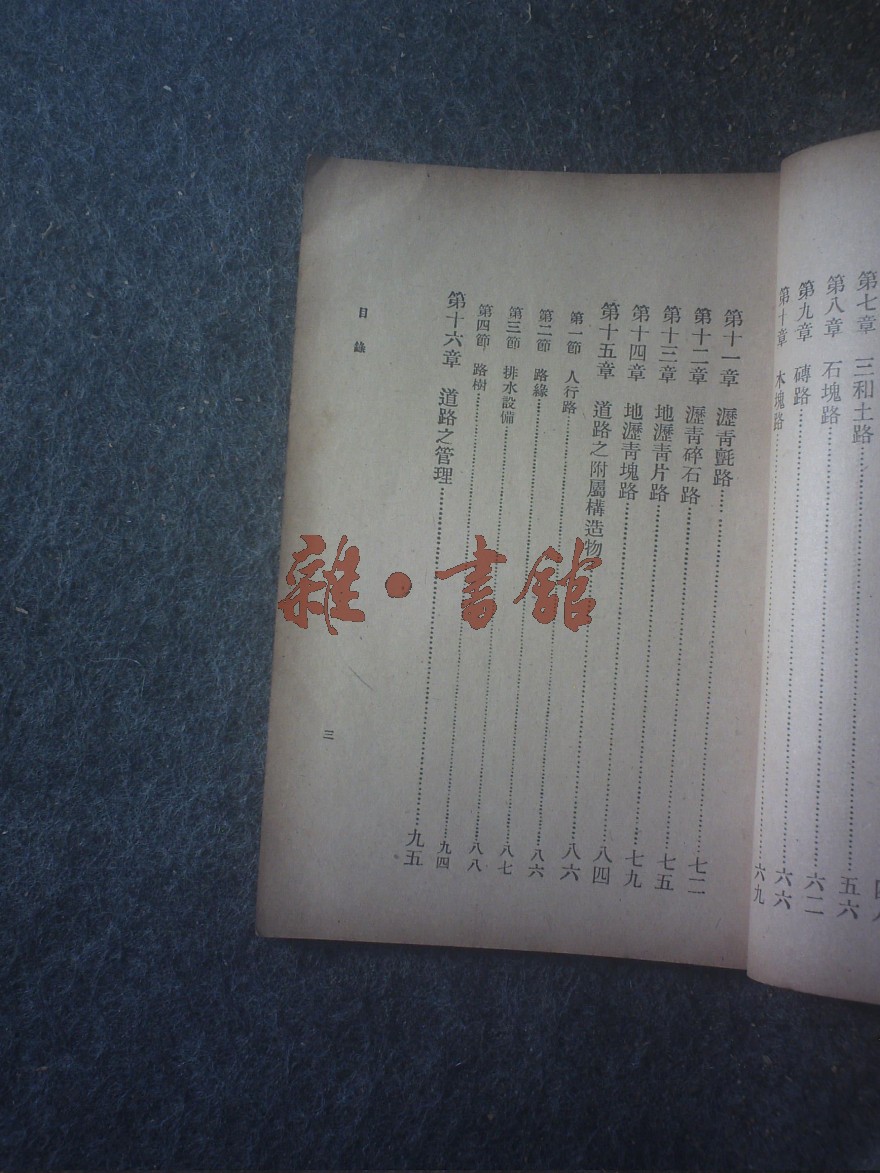 第七章 三和土路 五六
第八章 石塊路 六二
第九章 磚路 六六
第十章 木塊路 六九
第十一章 瀝青氈路 七二
第十二章 瀝青碎石路 七五
第十三章 地瀝青片路 七九
第十四章 地瀝青塊路 八四
第十五章 道路之附屬構造物 八六
第一節 人行路 八六
第二節 路緣 八七
第三節 排水設備 八八
第四節 路樹 九四
第十六章 道路之管理 九五
目錄
三
雜·書館